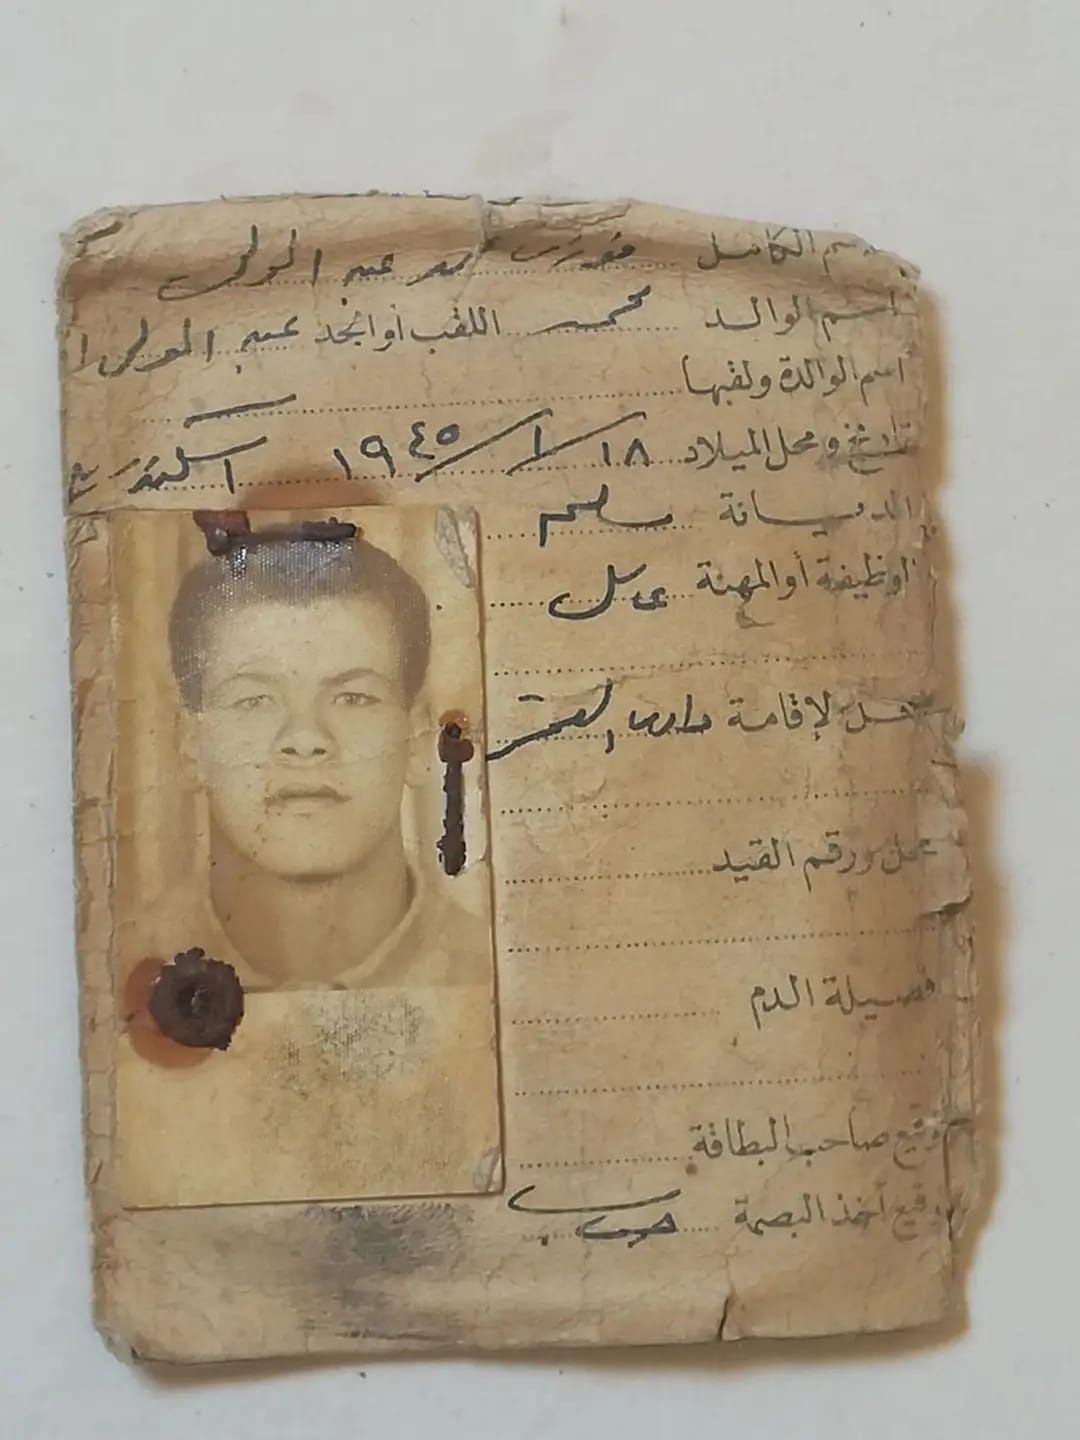 الاسم الكامل فوزي محمد عبد المولى
اسم الوالد محمد اللقب أو الجد عبد المولى
اسم الوالدة ولقبها
تاريخ ومحل الميلاد ١٨/١/١٩٤٥ اسكندرية
الديانة مسلم
الوظيفة أو المهنة عامل
محل الإقامة
محل ورقم القيد
فصيلة الدم
توقيع صاحب البطاقة
توقيع آخذ البصمة